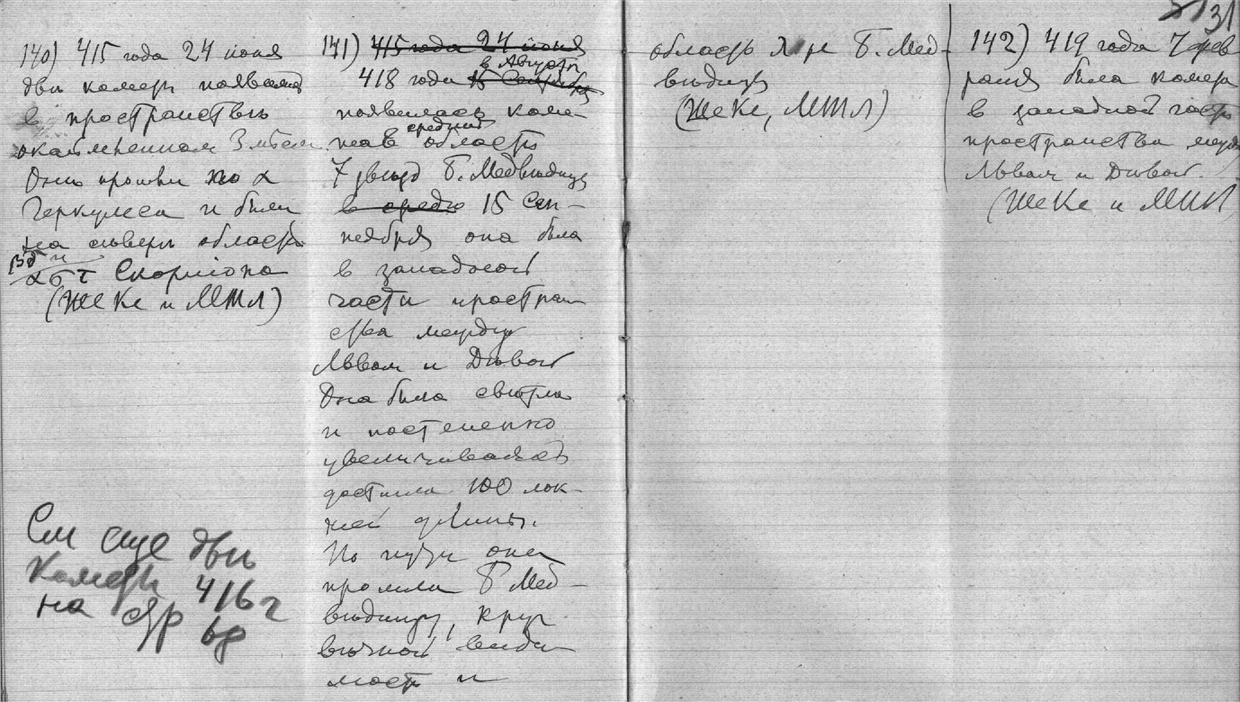 140) 415 года 24 июня
двѣ кометы появились
в пространствѣ
окаймленном Змѣем
Они прошли по α
Геркулеса и были
на сѣверѣ области
βδ и
α σ τ Скорпіона
(Ше Ке и МТЛ)
См еще двѣ
Кометы 416 г
на стр
141) 415 года 24 июня
в Августѣ
418 года 15 Сентября
появилась коме-
средней
та в области
7 звѣзд Б. Медвѣдицы
в средѣ 15 Сен-
тября она была
в западной
части простран
ства между
Львом и Дѣвой
Она была свѣтла
и постепенно
увеличиваясь
достигла 100 лок-
тей длины.
По пути она
прошла Б Мед-
вѣдицу, круг
вѣчной види
мости и
область Б. Мед-
вѣдицы
(Ше Ке, МТЛ)
31
142) 419 года 7 фев
раля была комета
в западной части
пространства между
Львом и Дѣвой.
(Ше Ке и МТЛ)